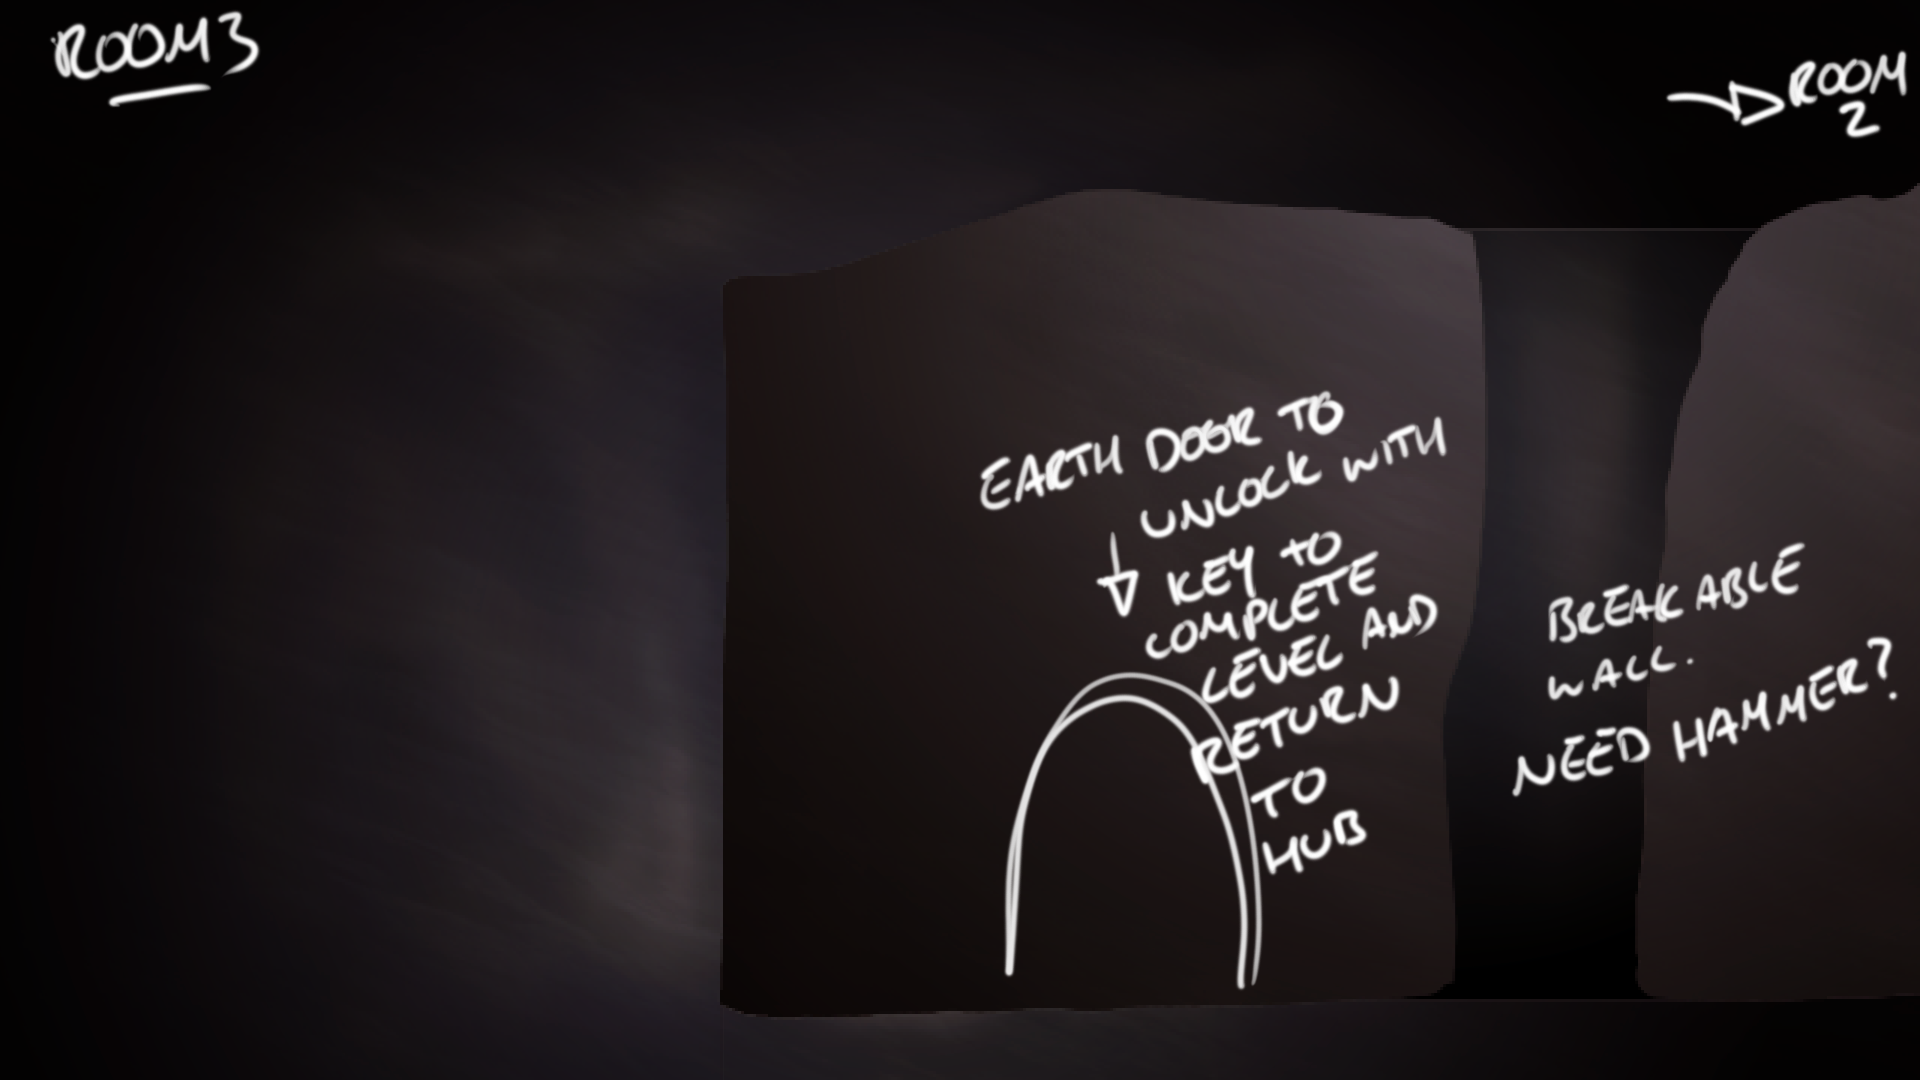 ROOM 3
ROOM
2
EARTH DOOR TO
UNLOCK WITH
KEY TO
COMPLETE
LEVEL AND
RETURN
TO
HUB
BREAKABLE
WALL.
NEED HAMMER?